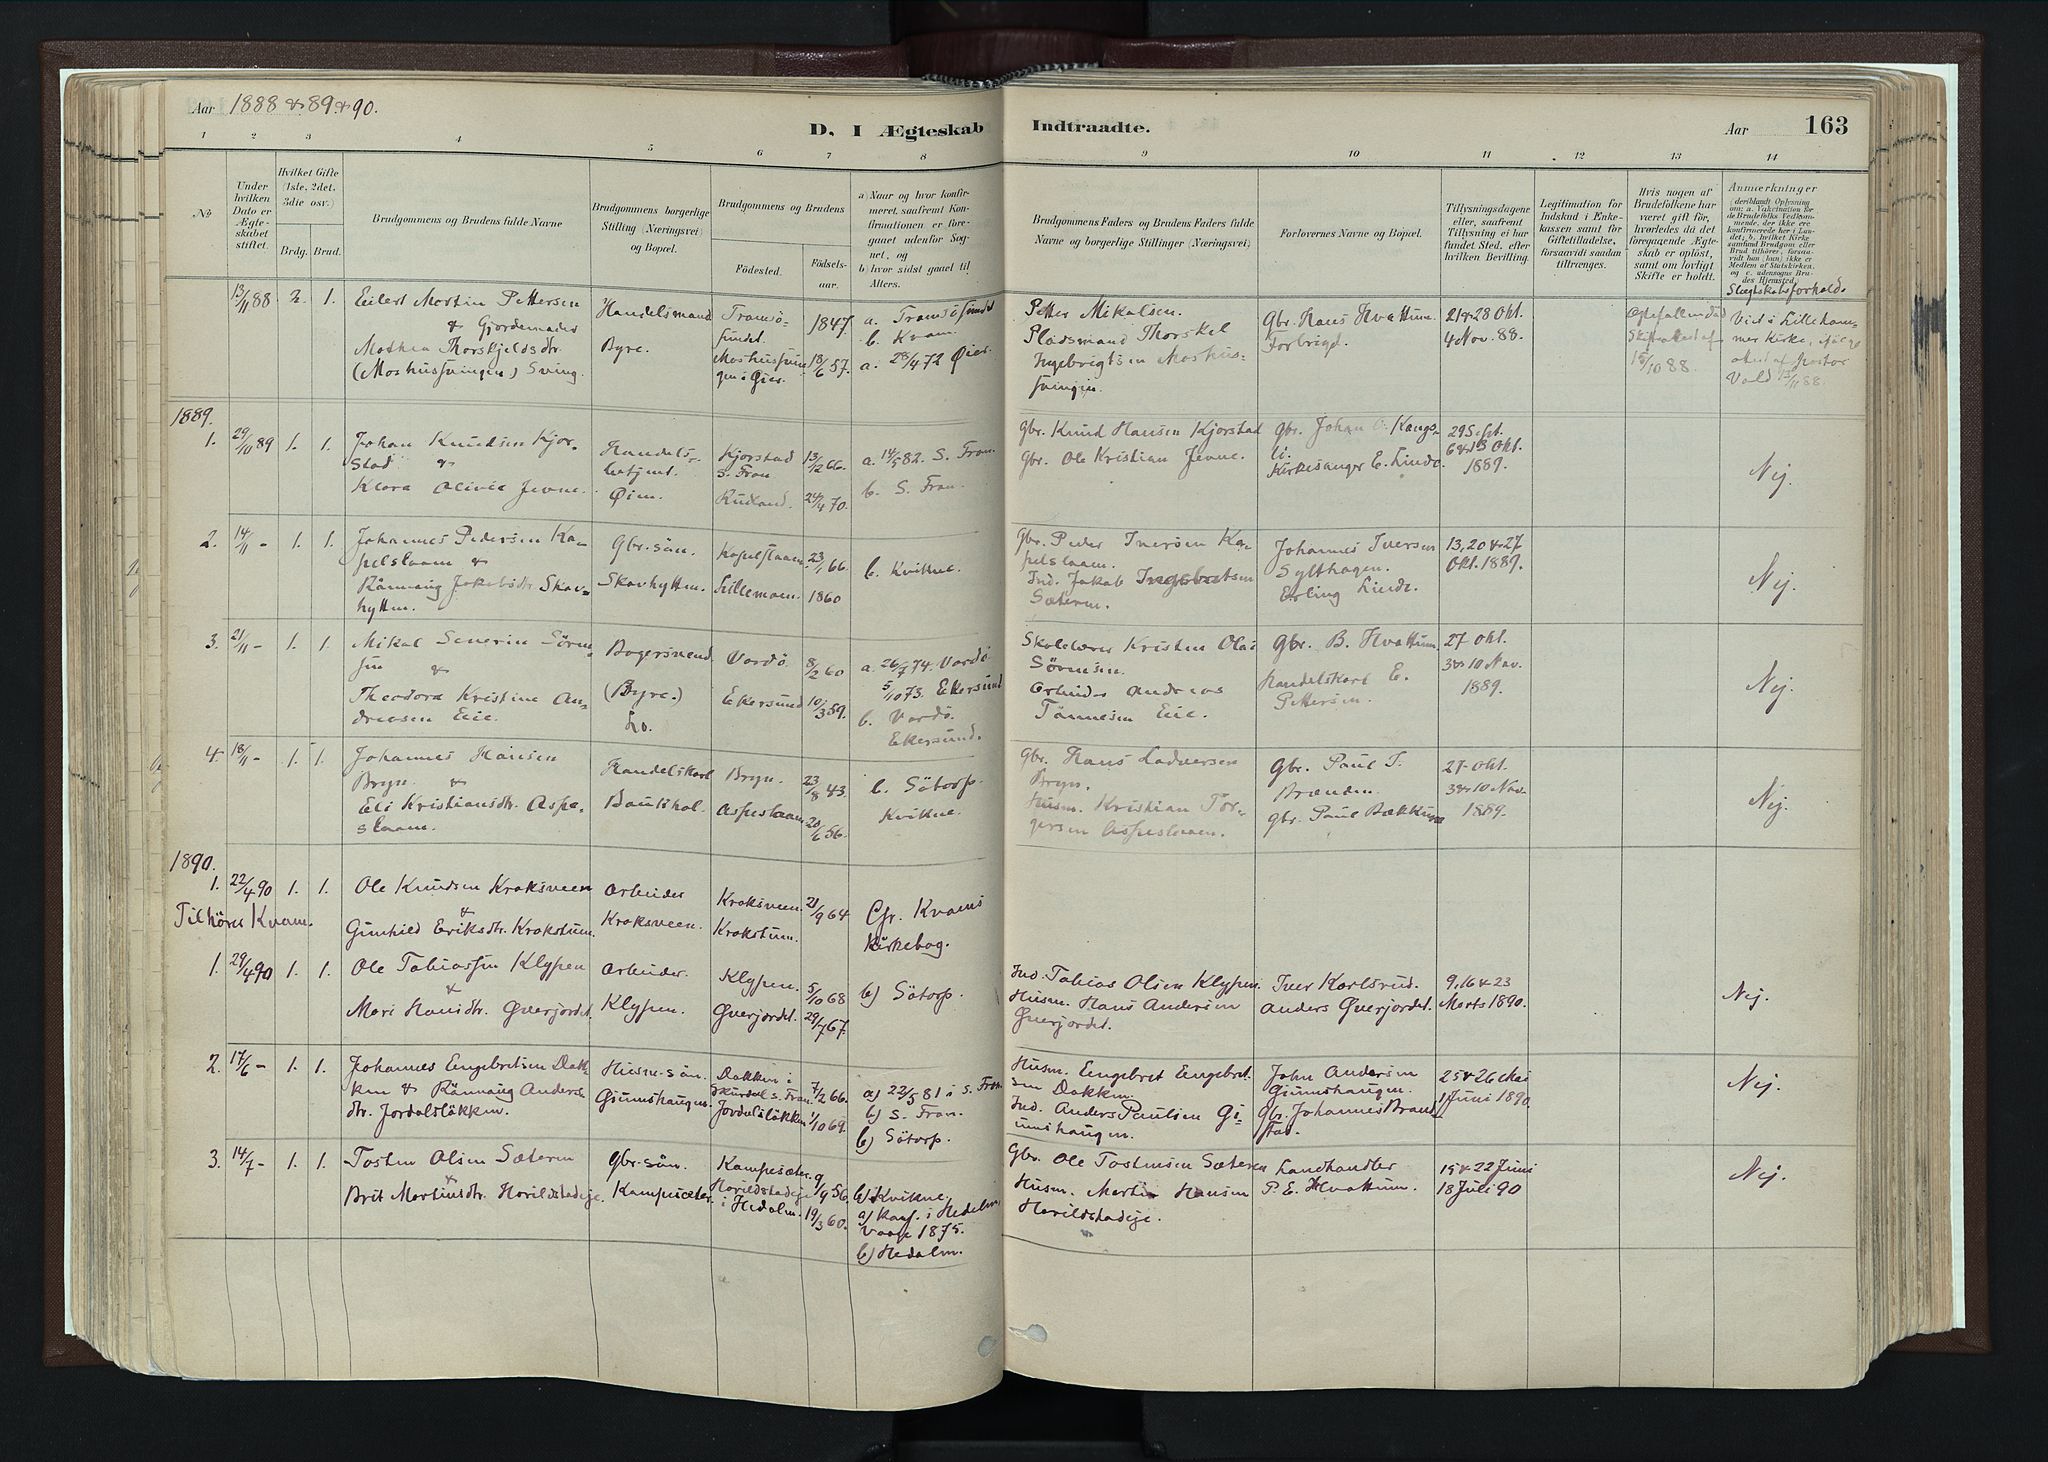 Aar 1888 & 89 & 90.
D. I Ægteskab Indtraadte.
Aar 163
1 2 3 4 5 6 7 8 9 10 11 12 13 14
№
Under hvilken Dato er Ægteskabet stiftet.
Hvilket Gifte (1ste, 2det, 3die osv.)
Brdg. Brud.
Brudgommens og Brudens fulde Navne
Brudgommens borgerlige Stilling (Næringsvei) og Bopæl.
Brudgommens og Brudens
Fødested. Fødselsaar.
a) Naar og hvor konfirmeret, saafremt Konfirmationen er foregaaet udenfor Sognet, og
b) hvor sidst gaaet til Alters.
Brudgommens Faders og Brudens Faders fulde Navne og borgerlige Stillinger (Næringsvei)
Forlovernes Navne og Bopæl.
Tillysningsdagene eller, saafremt Tillysning ei har fundet Sted, efter hvilken Bevilling.
Legitimation for Indskud i Enkekassen samt for Giftetilladelse, forsaavidt saadan tiltrænges.
Hvis nogen af Brudefolkene har været gift før, hvorledes da det foregaaende Ægteskab er opløst, samt om lovligt Skifte er holdt.
Anmærkninger
Slegtskabsforhold.
13/11 88 2. 1.
Eilert Mortin Pettersen
& Gjordemader
Mathea Thorskjeldsdtr.
(Moshussvingen) Sving.
Handelsmand
Byre.
Tromsö-
sundet
Moshussvin-
gen i Øier.
1847.
18/6 57.
a. Tromsösundet
b. Kvam.
a. 28/4 72 Øier.
Petter Mikalsen.
Pladsmand Thorskel
Ingebrigtsen Moshus-
svingen.
Gbr. Hans Hvattum.
Forbrigd.
21 & 28 Okt.
4 Nov. 88.
15/10 88.
Viet i Lilleham-
mer Kirke,
13/11 88.
1889.
1. 29/10 89 1. 1.
Johan Knudsen Kjor-
stad &
Klara Olivia Jevne.
Handels-
betjent.
Øien.
Kjorstad
S. Fron
Rudland.
13/2 66.
24/4 70.
a. 14/5 82. S. Fron.
b. S. Fron.
Gbr. Knud Hansen Kjorstad
Gbr. Ole Kristian Jevne.
Gbr. Johan O. Kongs-
li.
Kirkesanger E. Linde.
29 Sept.
6 & 13 Okt.
1889.
Nej.
2. 14/11 - 1. 1.
Johannes Pedersen Ka-
pelslaam &
Rånnaug Jakobsdtr. Skav-
hytten.
Gbr. sön.
Skavhytten.
Kapelslaam.
Lillemoen.
23/1 66.
1860
b. Kvikne.
Gbr. Peder Iversen Ka-
pelslaam.
Ind. Jakob Ingebretsen
Sæteren.
Johannes Iversen
Sylthagen.
Erling Linde.
13, 20 & 27
Okt. 1889.
Nej.
3. 21/11 - 1. 1.
Mikal Severin Sörn-
sen &
Theodora Kristine An-
dreasen Eie.
Bagersvend
(Byre.)
Lo.
Vardö
Ekersund
8/2 60
10/3 59.
a. 26/7 74. Vardö
5/10 73. Ekersund
b. Vardö.
Ekersund.
Skolelærer Kristen Olai
Sörnsen.
Arbeider Andreas
Tönnesen Eie.
Gbr. B. Hvattum.
Handelskarl E.
Pettersen.
27 Okt.
3 & 10 Nov.
1889.
Nej.
4. 18/11 - 1. 1.
Johannes Hansen
Bryn. &
Eli Kristiansdtr. Aspe-
slaam.
Handelskarl
Bryn.
Aspeslaam
23/8 43.
20/6 56.
b. Sötorp.
Kvikne.
Gbr. Hans Ladversen
Bryn.
Husm. Kristian Tor-
gersen Aspeslaam.
Gbr. Paul T.
Brænden.
Gbr. Paul Bækkum
27 Okt.
3 & 10 Nov.
1889.
Nej.
1890.
1. 22/4 90 1. 1.
Tilhörer Kvam.
Ole Knudsen Kroksveen
&
Gunhild Eriksdtr. Krokstum.
Arbeider
Kroksveen.
Kroksveen.
Krokstum.
21/9 64
Cfr. Kvams
Kirkebog.
1. 29/4 90 1. 1.
Ole Tobiassen Klypen
&
Mari Hansdtr. Gverjordet.
Arbeider.
Klypen.
Klypen.
Gverjordet.
5/10 68
29/7 67.
b) Sötorp.
Ind. Tobias Olsen Klypen.
Husm. Hans Andersen
Gverjordet.
Iver Karlsrud.
Anders Gverjordet.
9, 16 & 23
Marts 1890.
Nej.
2. 17/6 - 1. 1.
Johannes Engebretsen Dak-
ken & Rånnaug Anders-
dtr. Jordalsløkken.
Husm. sön.
Giumshaugen.
Dakken i
Skurdal S. Fron.
Jordalsløkken
7/2 66.
1/10 69.
a) 22/5 81 i S. Fron
b) S. Fron.
b) Sötorp.
Husm. Engebret Engebret-
sen Dakken.
Ind. Anders Paulsen Gi-
umshaugen.
John Andersen
Giumshaugen.
Gbr. Johannes Brand-
stad.
25 & 26 Mai
1 Juni 1890.
Nej.
3. 14/7 - 1. 1.
Tosten Olsen Sæteren
&
Brit Martinsdtr. Harildstadeje.
Gbr. sön.
Kampesæter.
Kampesæter.
Harildstadeje
i Hedalen.
9/9 56.
19/3 60.
b) Kvikne.
a) Konf. i Hedalen,
Vaage 1875.
b) Hedalen.
Gbr. Ole Tostensen Sæteren
Husm. Martin Hansen
Harildstadeje.
Landhandler
P. E. Hvattum.
15 & 22 Juni
18 Juli 90
Nej.